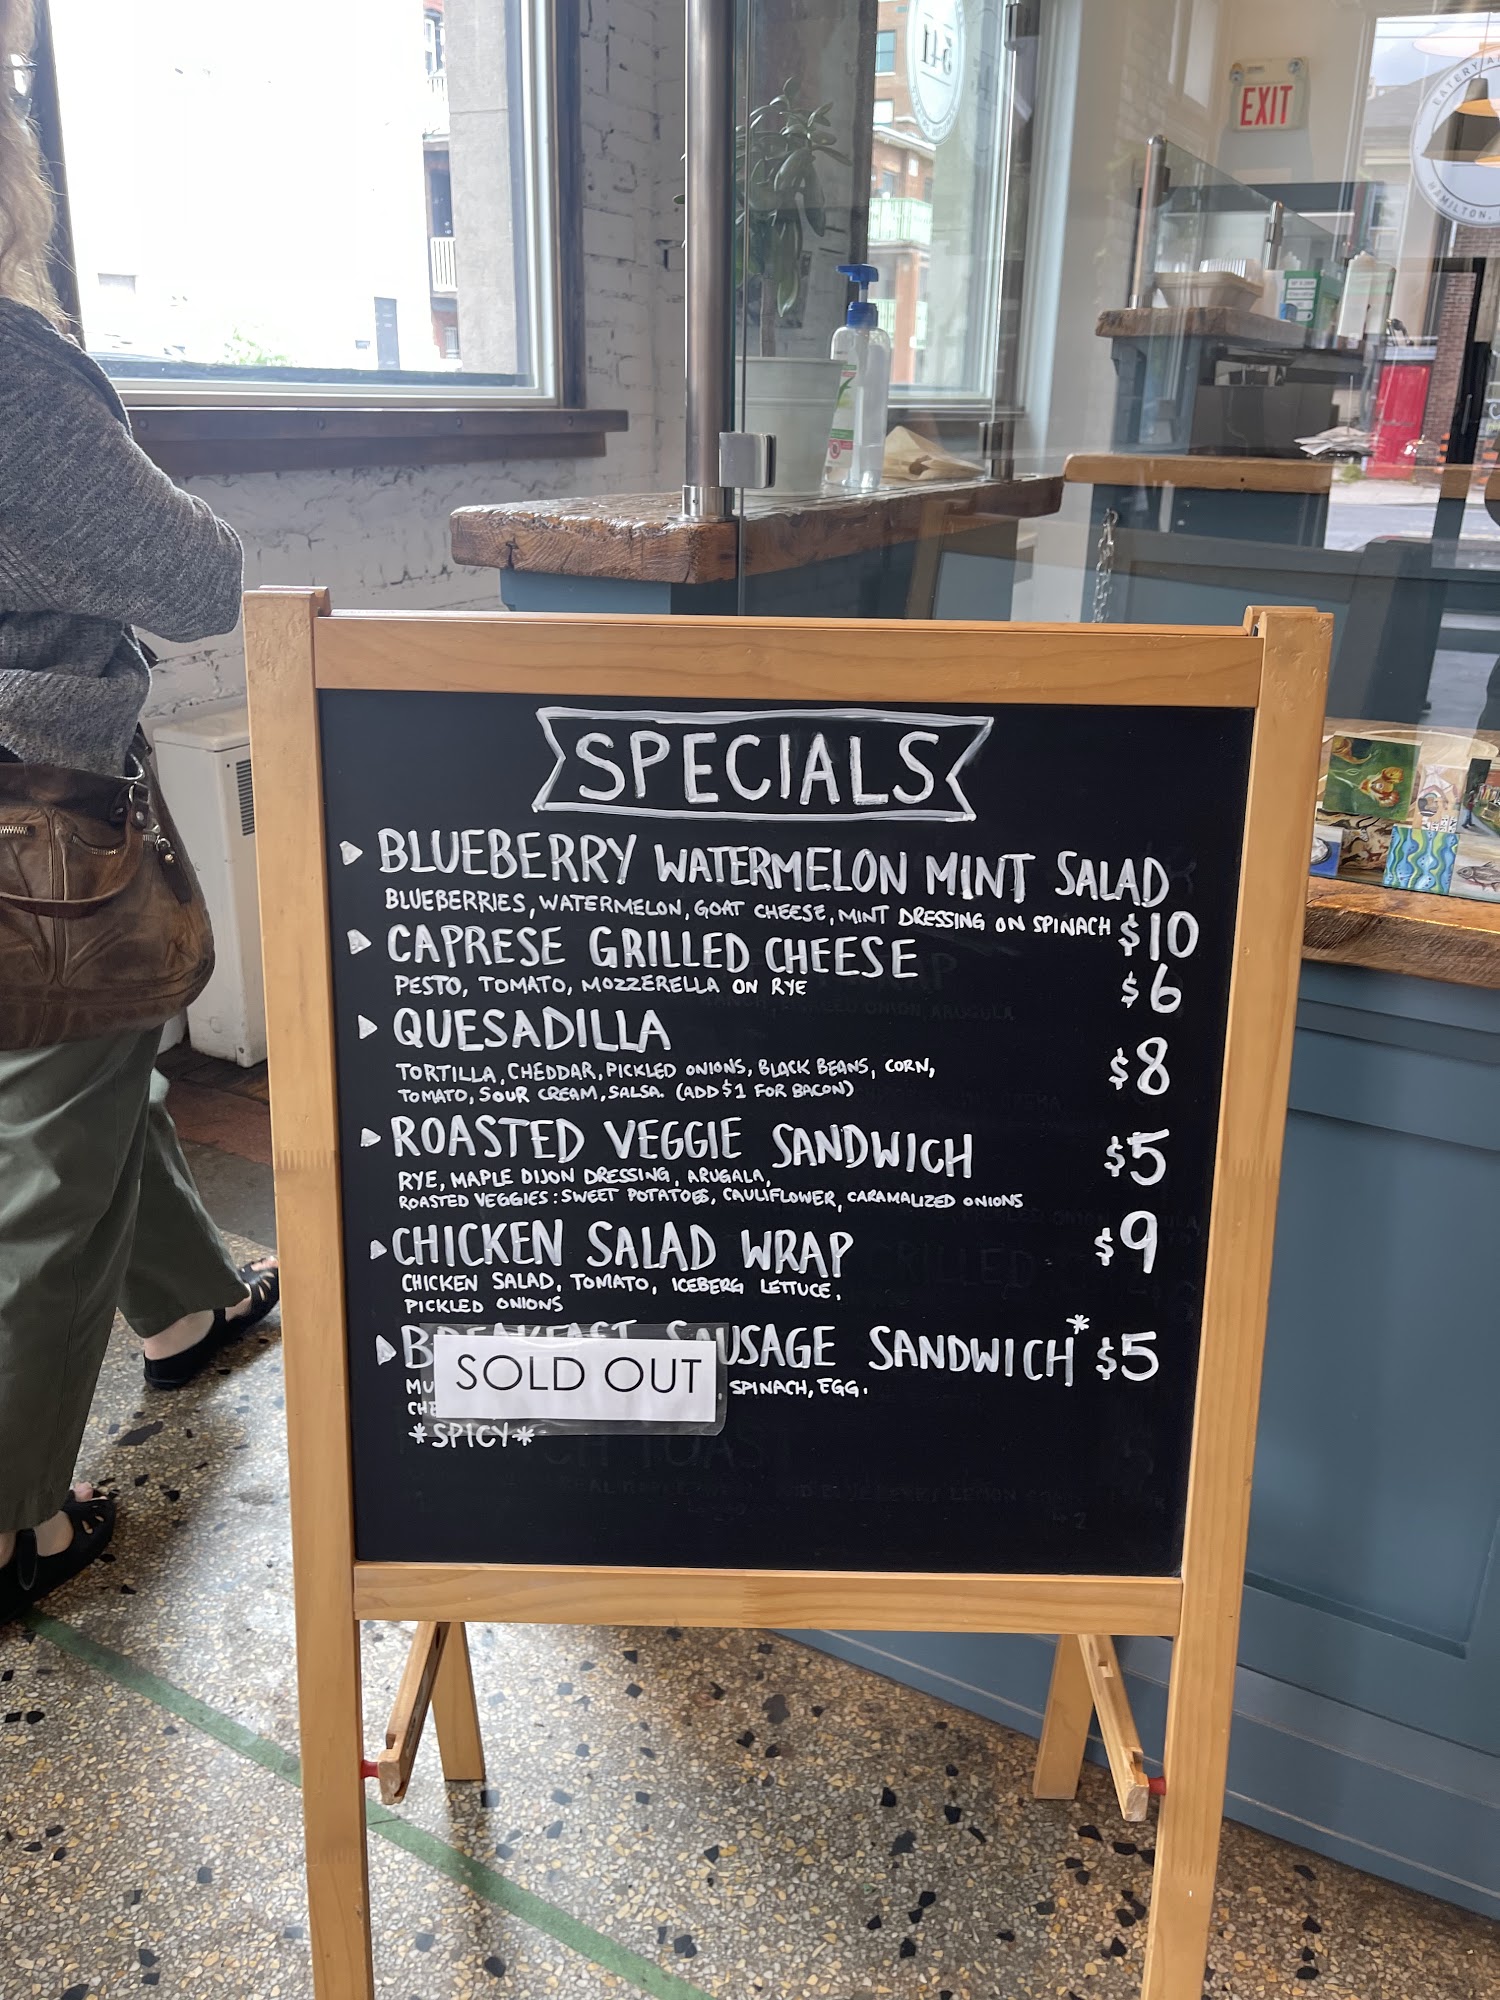 EXIT
541
EATERY
HAMILTON,
SPECIALS
BLUEBERRY WATERMELON MINT SALAD
BLUEBERRIES, WATERMELON, GOAT CHEESE, MINT DRESSING ON SPINACH $10
CAPRESE GRILLED CHEESE
PESTO, TOMATO, MOZZERELLA ON RYE $6
QUESADILLA
TORTILLA, CHEDDAR, PICKLED ONIONS, BLACK BEANS, CORN, $8
TOMATO, SOUR CREAM, SALSA. (ADD $1 FOR BACON)
ROASTED VEGGIE SANDWICH $5
RYE, MAPLE DIJON DRESSING, ARUGALA,
ROASTED VEGGIES: SWEET POTATOES, CAULIFLOWER, CARAMALIZED ONIONS
CHICKEN SALAD WRAP $9
CHICKEN SALAD, TOMATO, ICEBERG LETTUCE,
PICKLED ONIONS
BREAKFAST SAUSAGE SANDWICH* $5
SOLD OUT
SPINACH, EGG.
*SPICY*